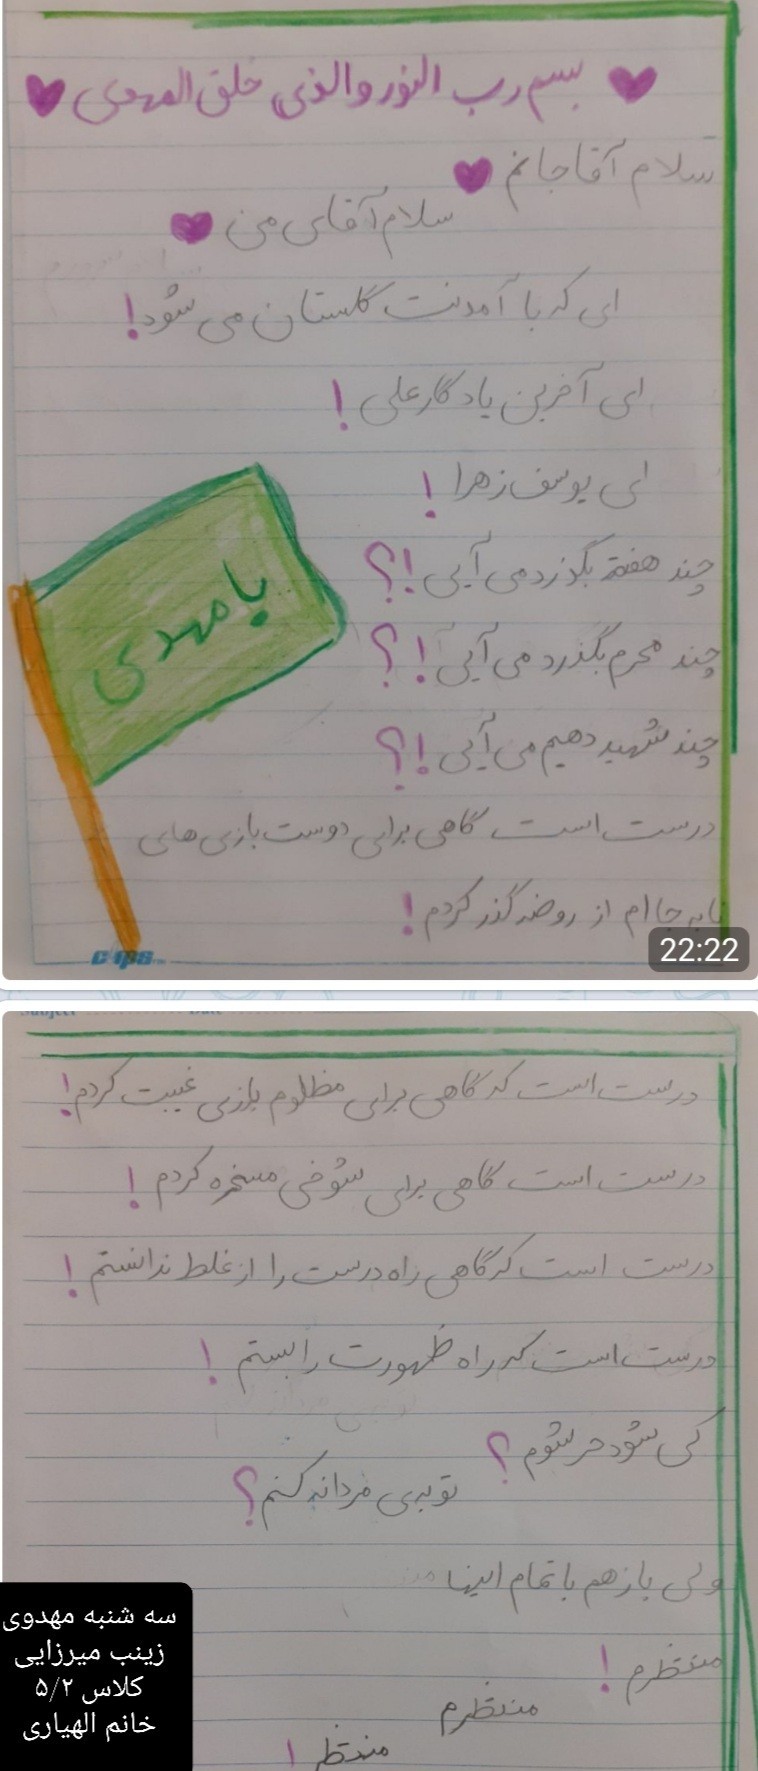 بسم رب النور والذی خلق المهدی
سلام آقا جانم
سلام آقای من
ای که با آمدنت گلستان می شود!
ای آخرین یادگار علی!
ای یوسف زهرا!
چند هفته بگذرد می آیی!؟
چند محرم بگذرد می آیی!؟
چند شهید دهیم می آیی!؟
یا مهدی
درست است گاهی برای دوست بازی های
نابه جا ام از روضه گذر کردم!
clips
22:22
Subject Date
درست است که گاهی برای مظلوم بازی غیبت کردم!
درست است گاهی برای شوخی مسخره کردم!
درست است که گاهی راه درست را از غلط ندانستم!
درست است که راه ظهورت را بستم!
کی شود حر شوم؟
توبه ی مردانه کنم؟
ولی بازهم با تمام اینا
منتظرم!
منتظرم
منتظر!
سه شنبه مهدوی
زینب میرزایی
کلاس ۵/۲
خانم الهیاری